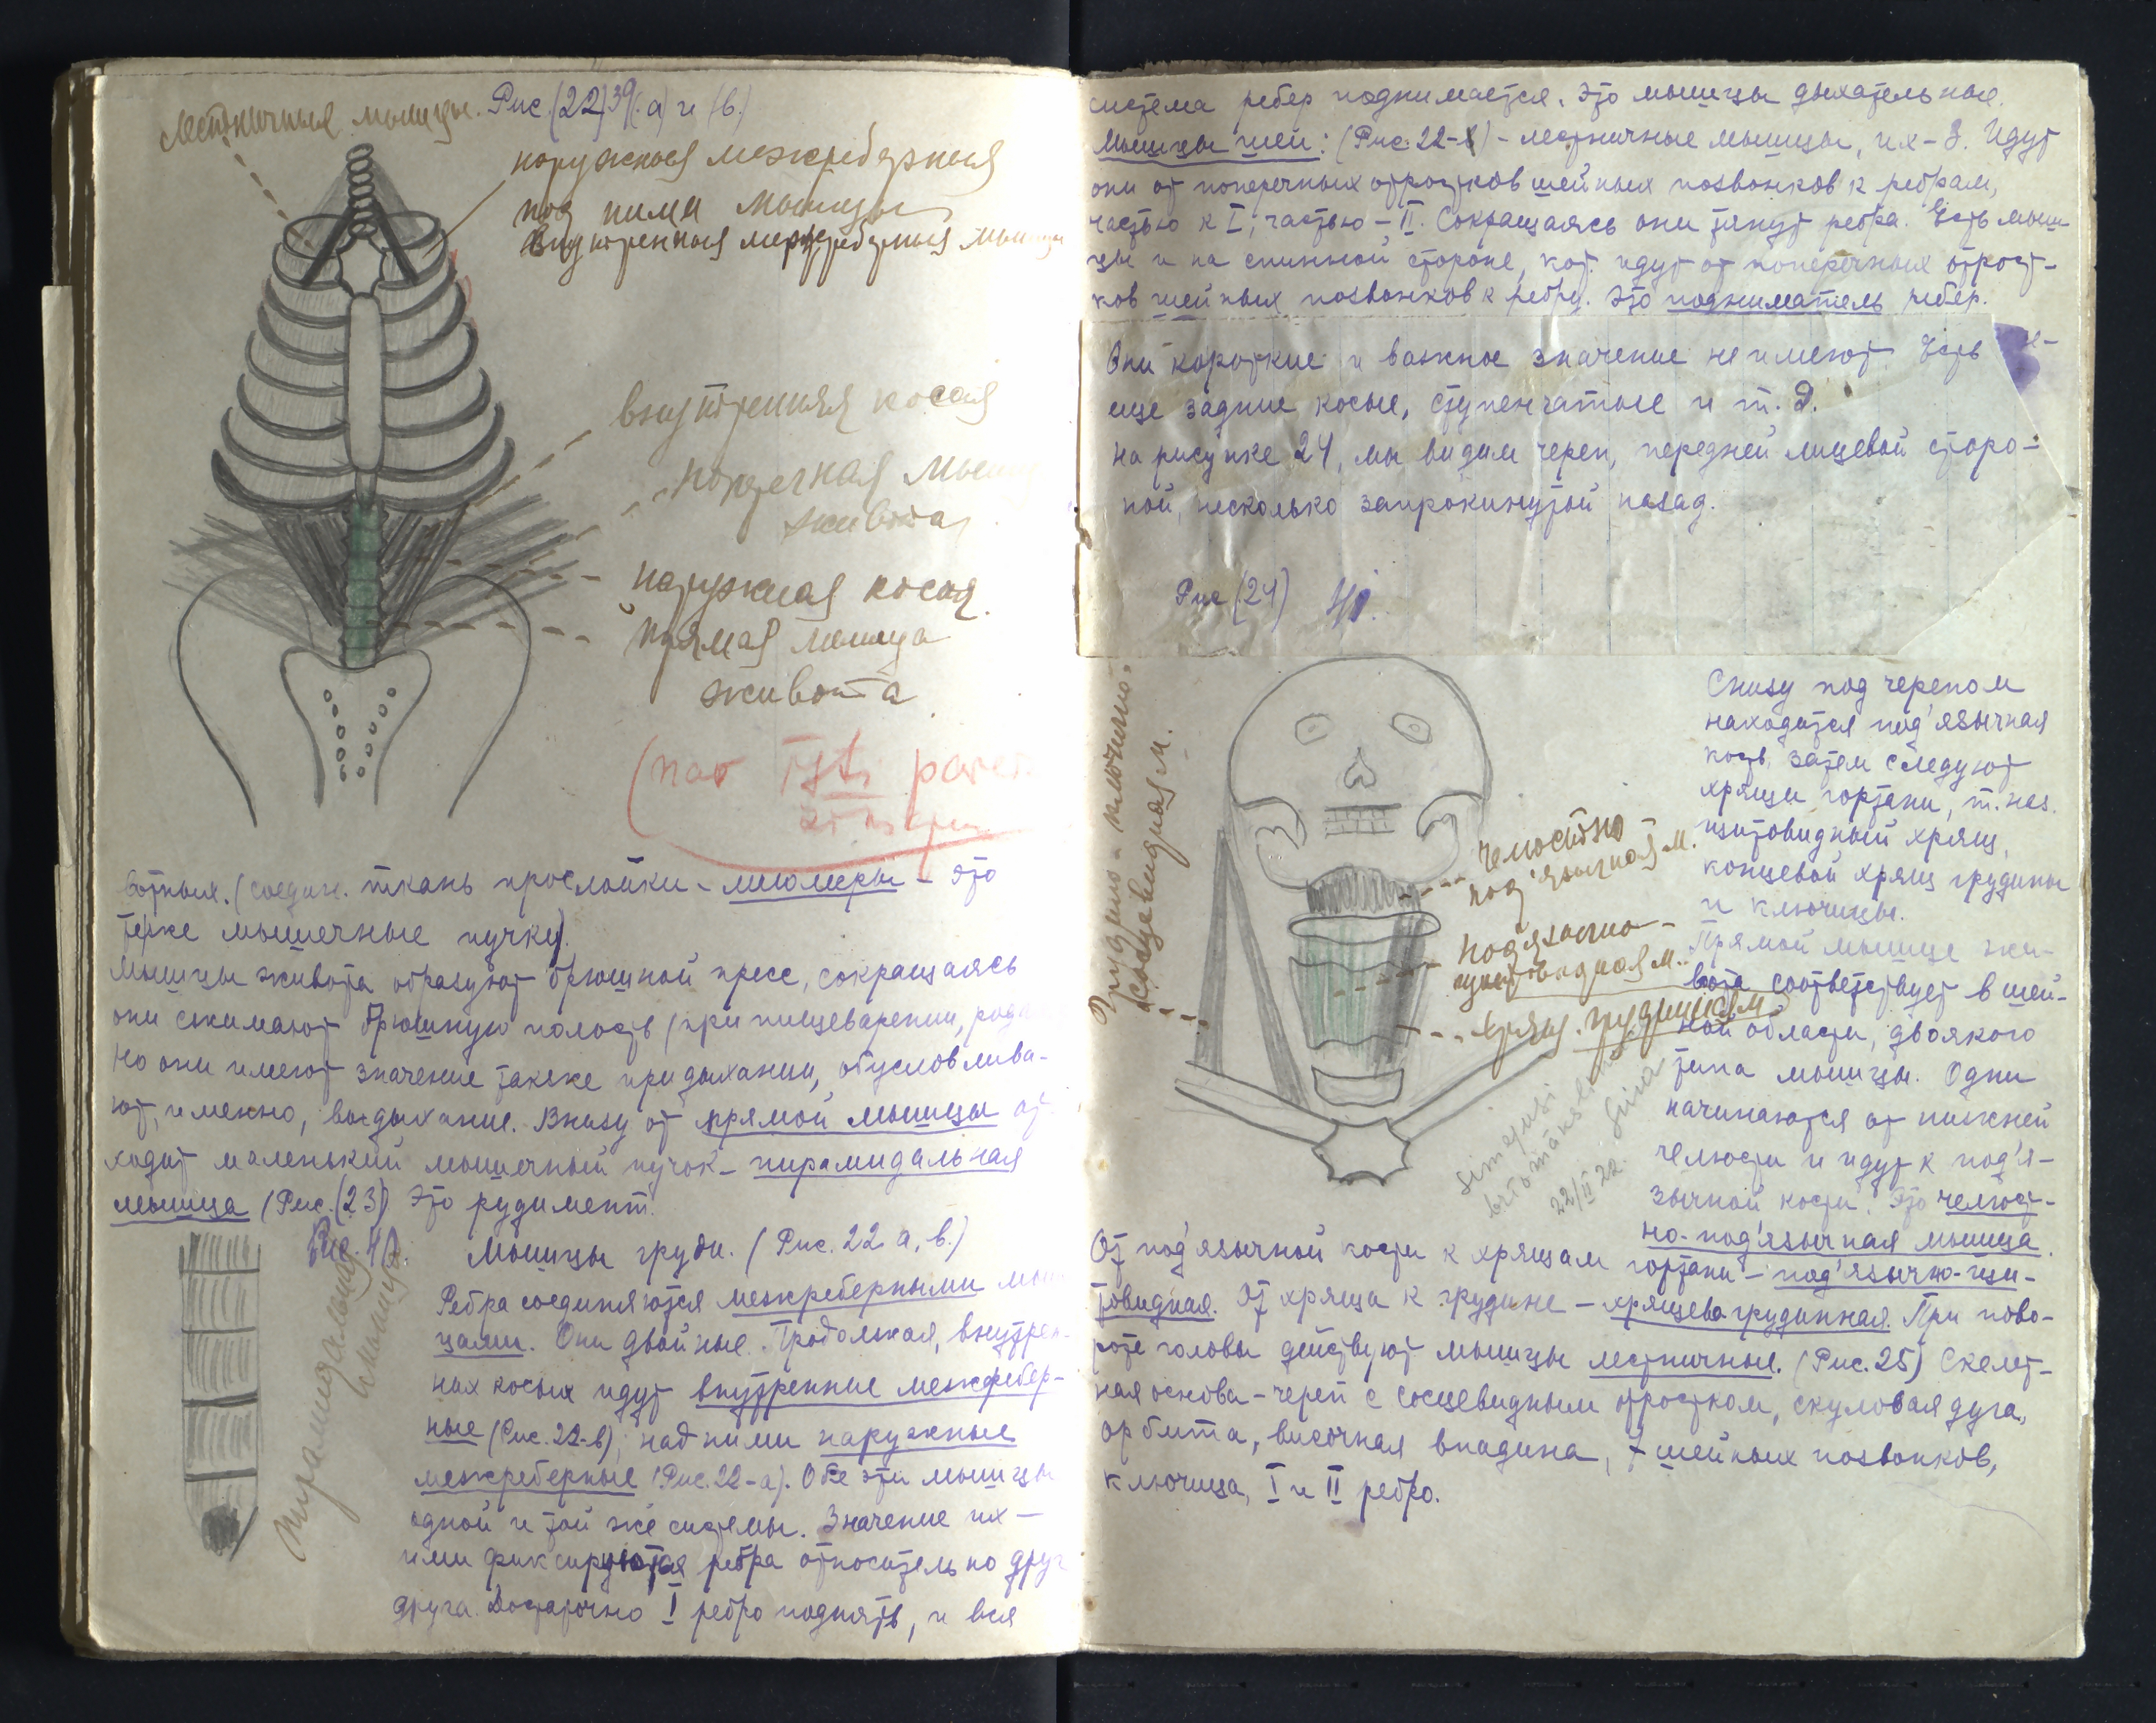 Лестничныя мышцы. Рис.(22) 39(а) и (в.)
наружныя межреберныя
под ними мышцы
внутренныя межреберныя мышцы
внутренняя косая
поперечная мышца
живота
наружная косая
прямая мышца
живота
(nav īsti pareizi
вотных. (соедин. ткань прослойки – миомеры – это
тоже мышечные пучки).
Мышцы живота образуют брюшной пресс, сокращаясь
они сжимают брюшную полость (при пищеварении,
Но они имеют значение также при дыхании, обусловлива-
ют, именно, выдыхание. Внизу от прямой мышцы от-
ходит маленький мышечный пучок – пирамидальная
мышца (Рис.(23) Это рудимент.
Рис. 40.
пирамидальная
мышца
Мышцы груди. (Рис. 22 а, в.)
Ребра соединяются межреберными мыш-
цами. Они двойные. Продолжая, внутрен-
них косых идут внутренние межребер-
ные (Рис. 22-в), над ними наружные
межреберные (Рис. 22-а). Обе эти мышцы
одной и той же системы. Значение их –
ими фиксируются ребра относительно друг
друга. Достаточно I ребро поднять, и вся
система ребер поднимается. Это мышцы дыхательные.
Мышцы шеи: (Рис. 22-в) – лестничные мышцы, их – 3. Идут
они от поперечных отростков шейных позвонков к ребрам,
частью к I, частью – II. Сокращаясь они тянут ребра. Есть мыш-
цы и на спинной стороне, кот. идут от поперечных отрост-
ков шейных позвонков к ребру. Это подниматель ребер.
Они короткие и важное значение не имеют. Есть
еще задние косые, ступенчатые и т. д.
На рисунке 24, мы видим череп, передней лицевой сторо-
ной, несколько запрокинутой назад.
Рис (24) 41.
Грудино-ключично-
сосцевидная м.
челюстно-
под'язычная м.
Под'язычно-
щитовидная м.
хрящ. грудинная м.
Simejusi
22/II 22.
Снизу под черепом
находится под'язычная
кость, затем следуют
хрящи гортани, т. наз.
щитовидный хрящ,
концевой хрящ грудины
и ключицы.
Прямой мышце жи-
вота соответствует в шей-
ной области, двоякого
типа мышцы. Одни
начинаются от нижней
челюсти и идут к под'я-
зычной кости. Это челюст-
но-под'язычная мышца.
От под'язычной кости к хрящам гортани – под'язычно-щи-
товидная. От хряща к грудине – хрящевагрудинная. При пово-
роте головы действуют мышцы лестничные. (Рис. 25) Скелет-
ная основа – череп с сосцевидным отростком, скуловая дуга,
орбита, височная впадина, 7 шейных позвонков,
ключица, I и II ребро.